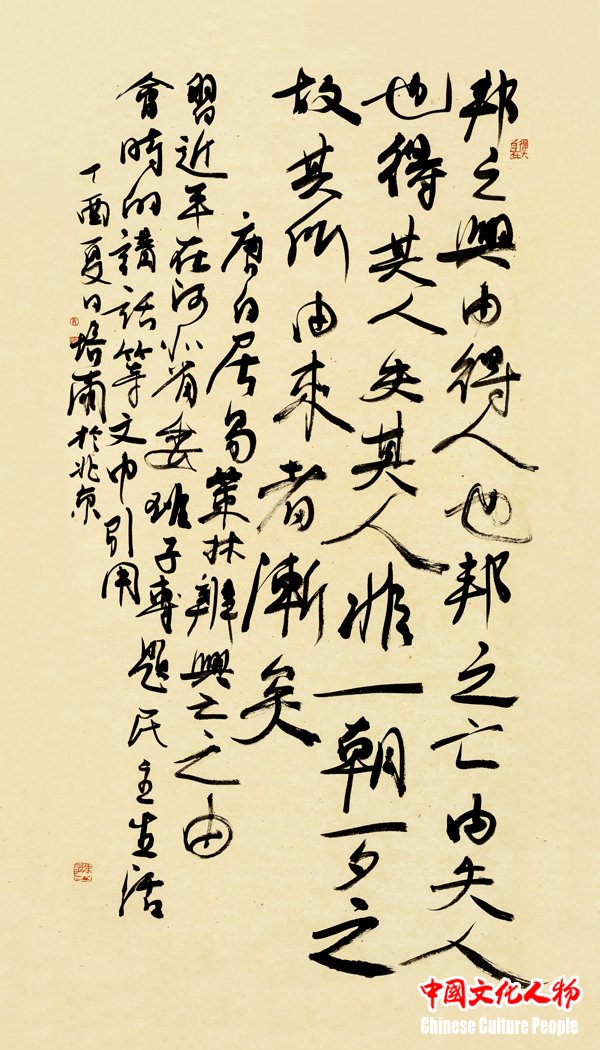 邦之興由得人也邦之亡由失人
也得其人失其人非一朝一夕之
故其所由來者漸矣
唐白居易策林辨興亡之由
習近平在河北省委班子專題民主生活
會時的講話等文中引用
丁酉夏日培於北京
中國文化人物
Chinese Culture People